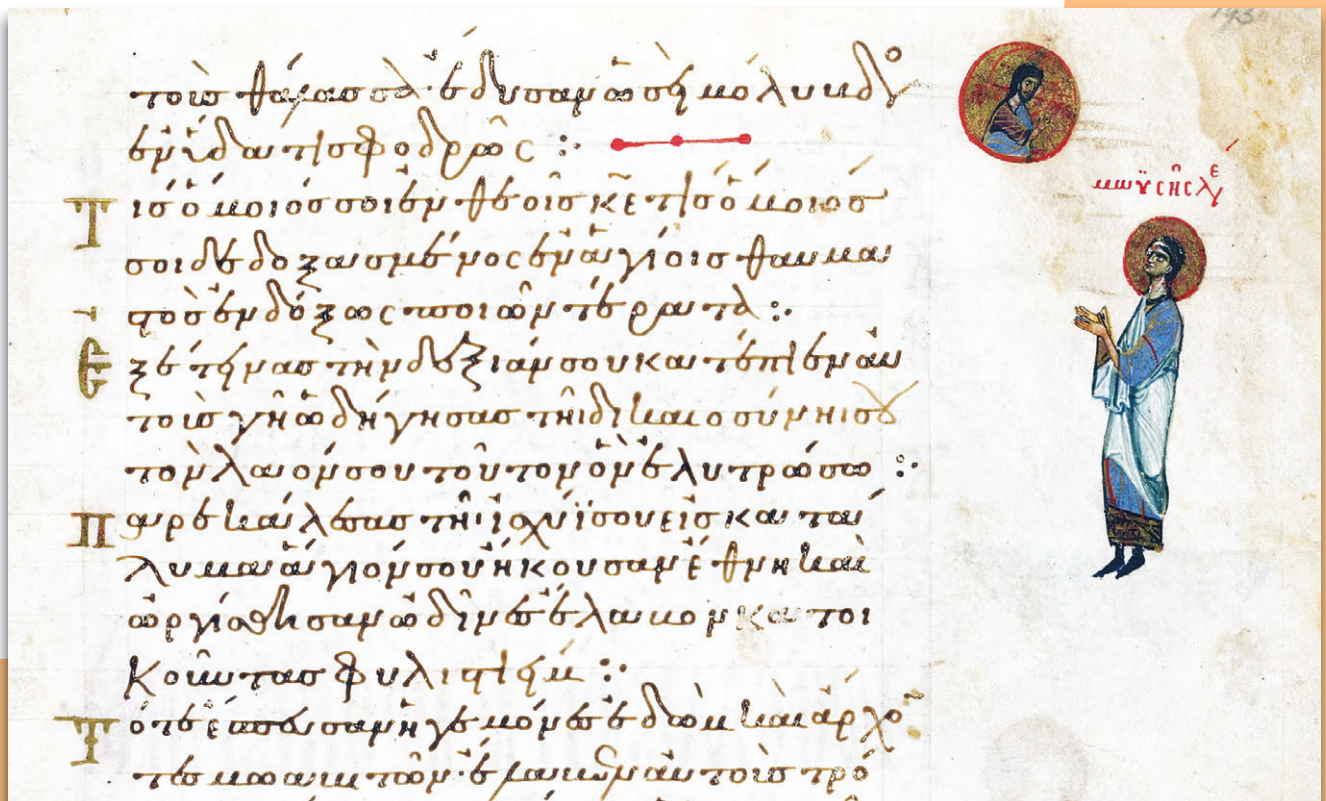 193
τοὺς θάλασσα· ἔδυσαν ὡσὴ μόλυβδο
ἐν ὕδατι σφοδρῶς :·
μωϋσῆς λέ
Τίς ὅμοιός σοι ἐν θεοῖς κ̅ε̅ τίς ὅμοιός
σοι δεδοξασμένος ἐν ἁγίοις θαυμα
στὸς ἐν δόξαις ποιῶν τέρατα :·
Ἐξέτεινας τὴν δεξιάν σου κατέπιεν αὐ
τοὺς γῆ ὡδήγησας τῆι δικαιοσύνηι σου
τὸν λαόν σου τοῦτον ὃν ἐλυτρώσω :·
Παρεκάλεσας τῆ ἰσχύϊ σου εἰς κατά
λυμα ἅγιόν σου ἤκουσαν ἔθνη καὶ
ὠργίσθησαν ὠδῖνες ἔλαβον κατοι
κοῦντας φυλιστιείμ :·
Τότε ἔσπευσαν ἡγεμόνες ἐδὼμ καὶ ἄρχον
τες μωαβιτῶν· ἔλαβεν αὐτοὺς τρό